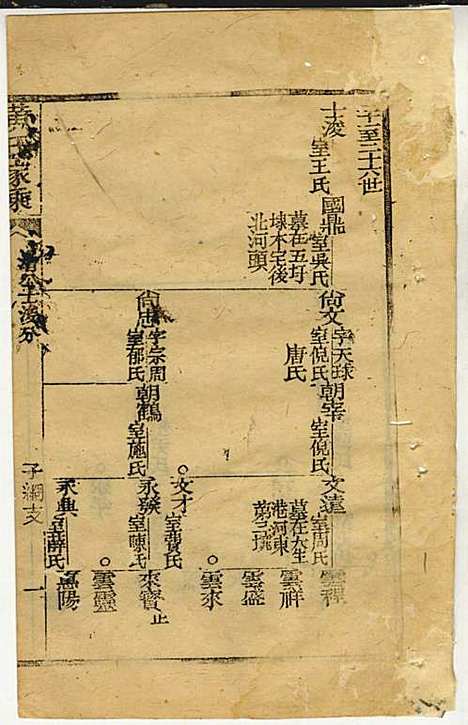 子至二十六世
士浚
室王氏
國鼎
室吳氏
墓在五圩
埭本宅後
北河頭
尙文
字天球
室倪氏
唐氏
朝宰
室倪氏
文遠
室周氏
墓在大生
港河東
第三墩
雲程
雲祥
雲盛
雲來
尙忠
字宗周
室郁氏
朝鶴
室施氏
文才
室黃氏
永發
室陳氏
來寶
止
雲靈
永典
室薛氏
黃氏家乘
士浚分
子綱支
一